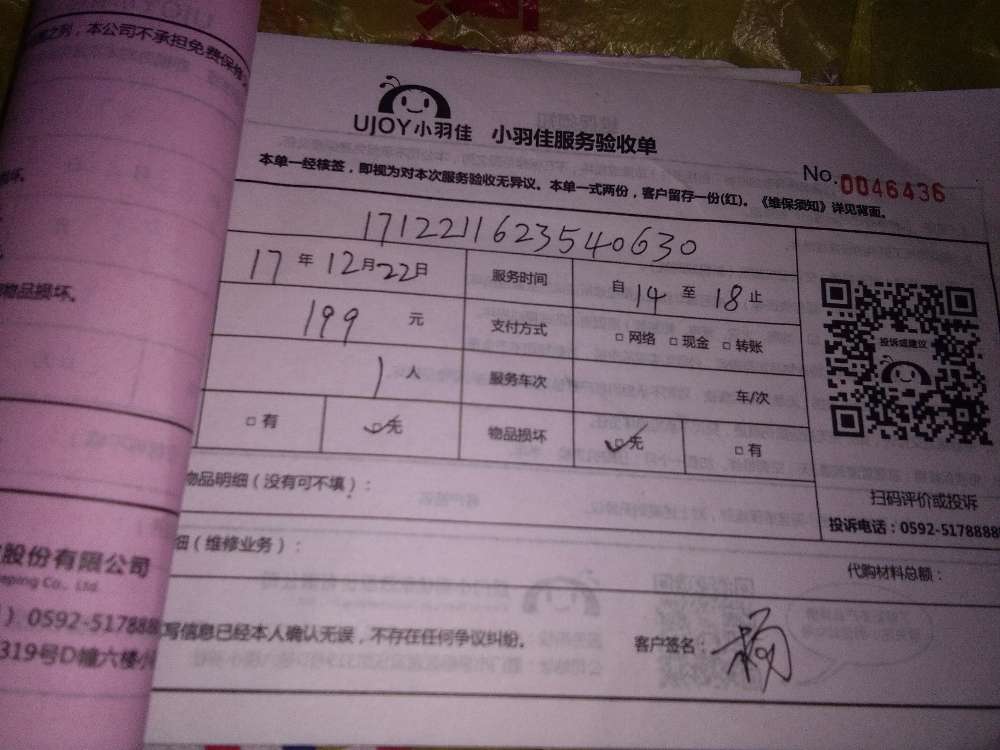 之列，本公司不承担免费保修
UJOY小羽佳 小羽佳服务验收单
No.0046436
本单一经核签，即视为对本次服务验收无异议。本单一式两份，客户留存一份(红)。《维保须知》详见背面。
1712211623540630
17年12月22日 服务时间 自14至18止
199元 支付方式 □网络 □现金 □转账
1人 服务车次 车/次
□有 □无 物品损坏 □无 □有
投诉或建议
物品损坏。
物品明细（没有可不填）：
扫码评价或投诉
投诉电话：0592-5178888
细（维修业务）： 代购材料总额：
股份有限公司
eping Co., Ltd.
）0592-517888
写信息已经本人确认无误，不存在任何争议纠纷。 客户签名：杨
319号D幢六楼